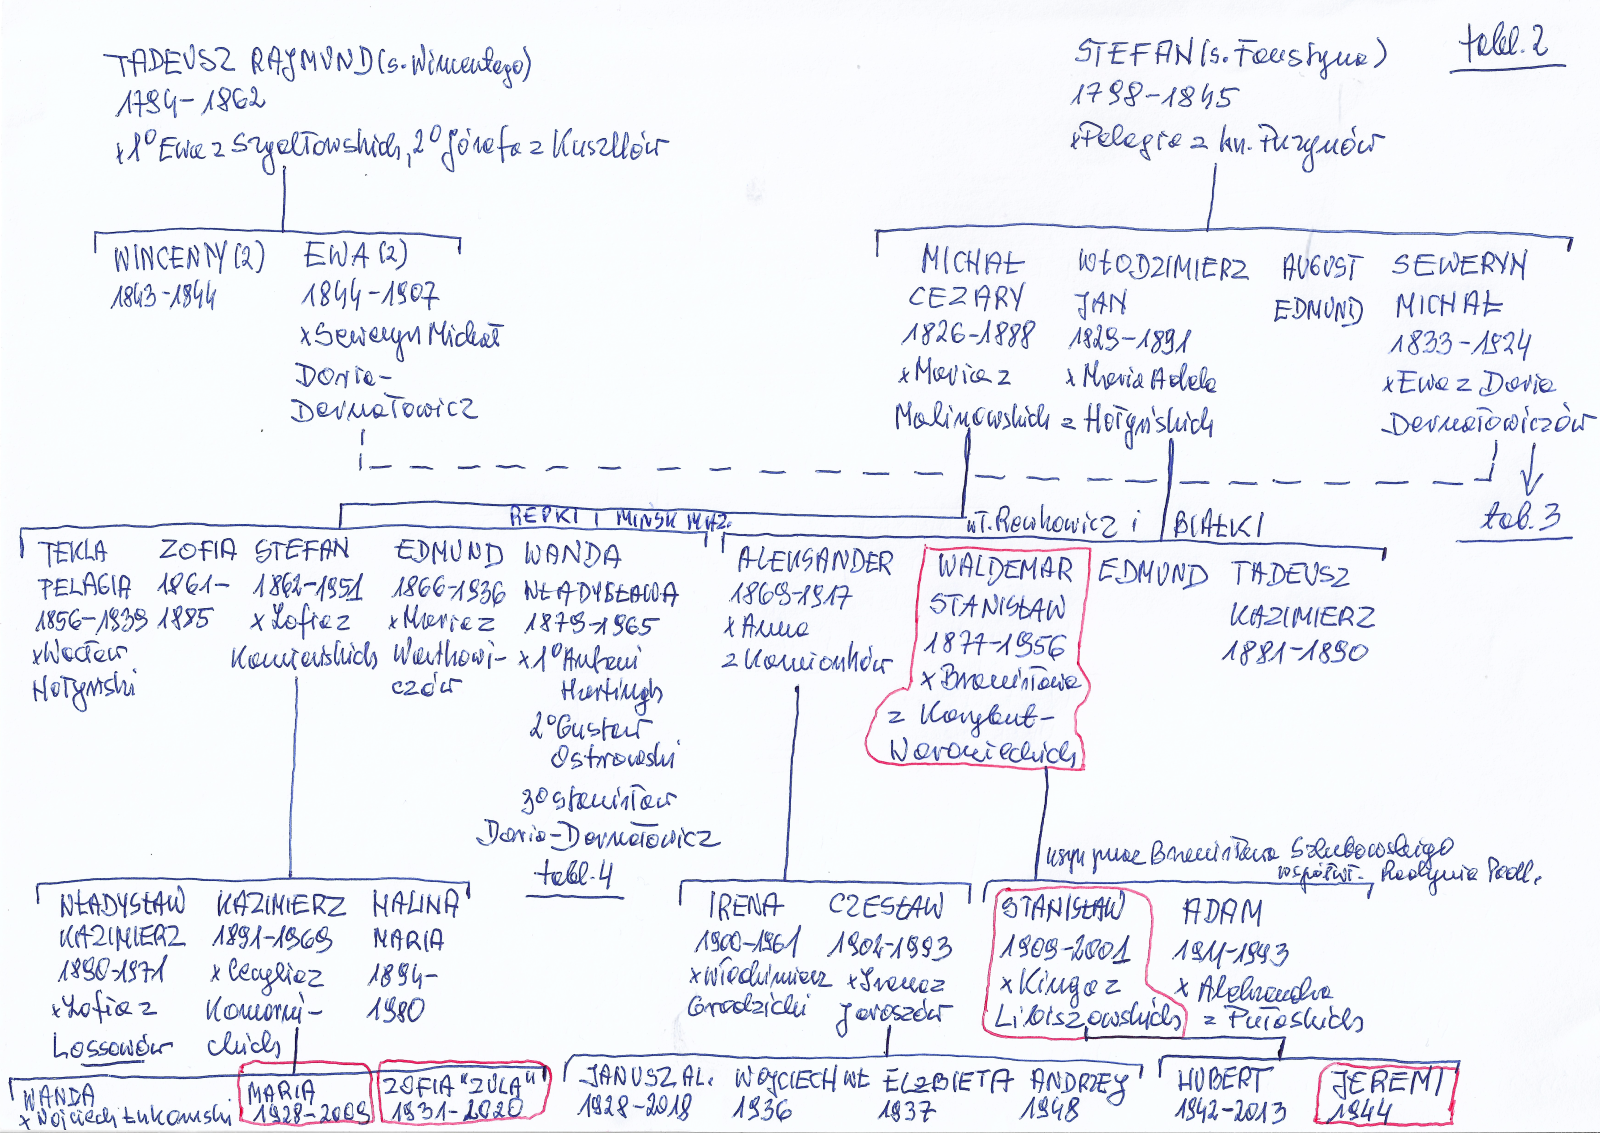 tabl. 2
TADEUSZ RAJMUND (s. Wincentego)
1794-1862
x 1° Ewa z Szyołtowskich, 2° Józefa z Kuszllów
STEFAN (s. Faustyna)
1798-1845
x Pelagia z kn. Puzynów
WINCENTY (2)
1843-1844
EWA (2)
1844-1907
x Seweryn Michał
Doria-
Dernałowicz
MICHAŁ
CEZARY
1826-1888
x Maria z
Malinowskich
WŁODZIMIERZ
JAN
1829-1891
x Maria Adela
z Hołyńskich
AUGUST
EDMUND
SEWERYN
MICHAŁ
1833-1924
x Ewa z Doria
Dernałowiczów
tab. 3
REPKI I MIŃSK MAZ.
wł. Renkowicz i BIAŁKI
TEKLA
PELAGIA
1856-1939
x Wacław
Hołyński
ZOFIA
1861-
1885
STEFAN
1862-1951
x Zofia z
Kamieńskich
EDMUND
1866-1936
x Maria z
Wańkowi-
czów
WANDA
WŁADYSŁAWA
1879-1965
x 1° Antoni
Hartingh
2° Gustaw
Ostrowski
3° Stanisław
Doria-Dernałowicz
tabl. 4
ALEKSANDER
1869-1917
x Anna
z Kamionków
WALDEMAR
STANISŁAW
1877-1956
x Bronisława
z Korybut-
Woronieckich
EDMUND
TADEUSZ
KAZIMIERZ
1881-1890
usyn. przez Bronisława Szlubowskiego
współwł. Radzynia Podl.
WŁADYSŁAW
KAZIMIERZ
1890-1971
x Zofia z
Lossowów
KAZIMIERZ
1891-1969
x Cecylia z
Komorni-
ckich
HALINA
MARIA
1894-
1980
IRENA
1900-1961
x Włodzimierz
Grodzicki
CZESŁAW
1902-1993
x Irena z
Jaroszów
STANISŁAW
1909-2001
x Kinga z
Libiszowskich
ADAM
1911-1993
x Aleksandra
z Pułaskich
WANDA
x Wojciech Łukomski
MARIA
1928-2009
ZOFIA "ZULA"
1931-2020
JANUSZ AL.
1928-2018
WOJCIECH WŁ
1936
ELŻBIETA
1937
ANDRZEJ
1948
HUBERT
1942-2013
JEREMI
1944